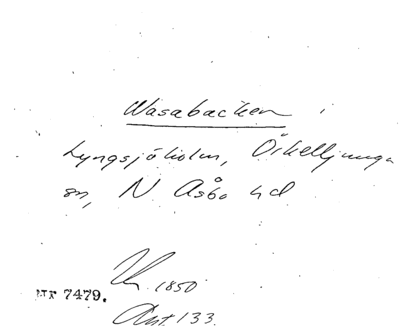 Wasabacken i
Lyngsjöholm, Örkelljunga
sn, N Åsbo hd
1850
Nr 7479.
Ant. 133.